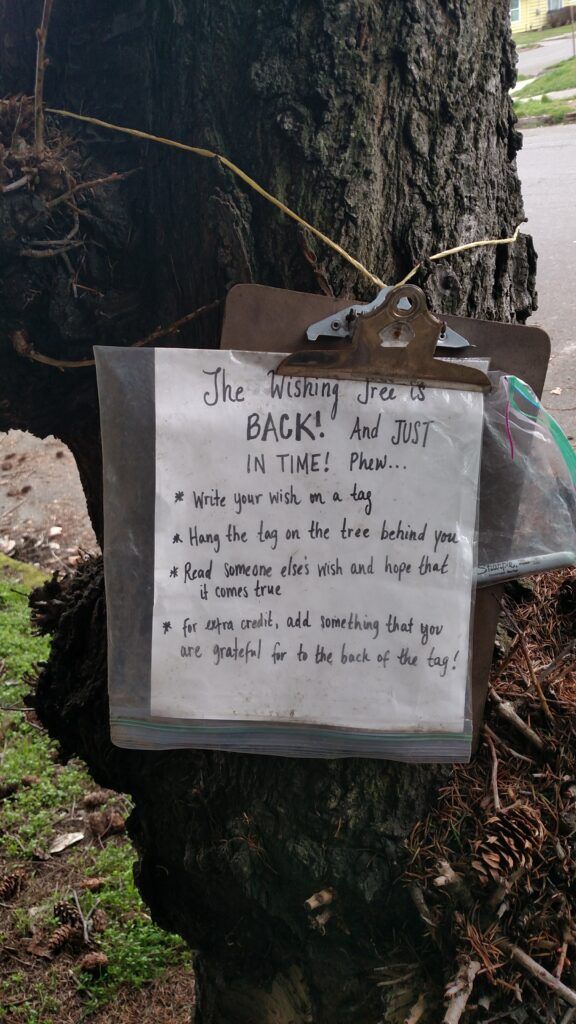 The Wishing Tree is
BACK! And JUST
IN TIME! Phew...
* Write your wish on a tag
* Hang the tag on the tree behind you
* Read someone else's wish and hope that
it comes true
* For extra credit, add something that you
are grateful for to the back of the tag!
Sharpie